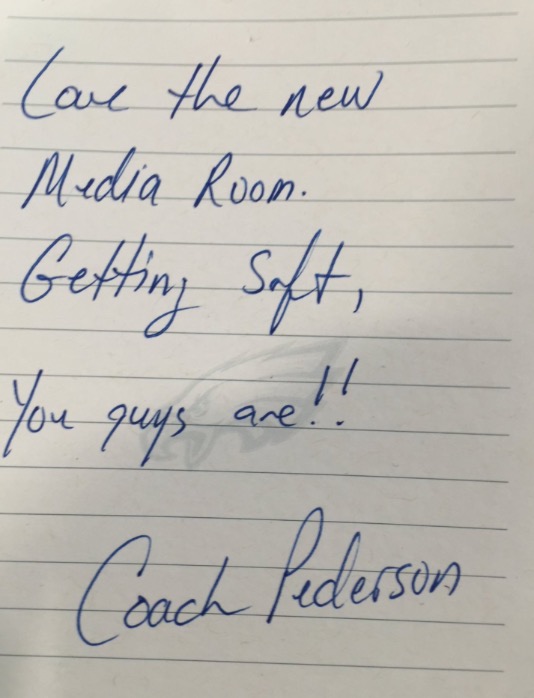 Love the new
Media Room.
Getting Soft,
You guys are!!
Coach Pederson